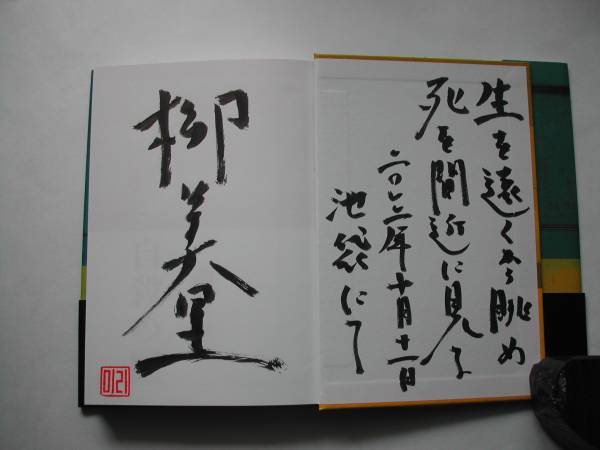 生を遠くから眺め
死を間近に見る
二〇一二年十月十一日
池袋にて
柳美里
미리